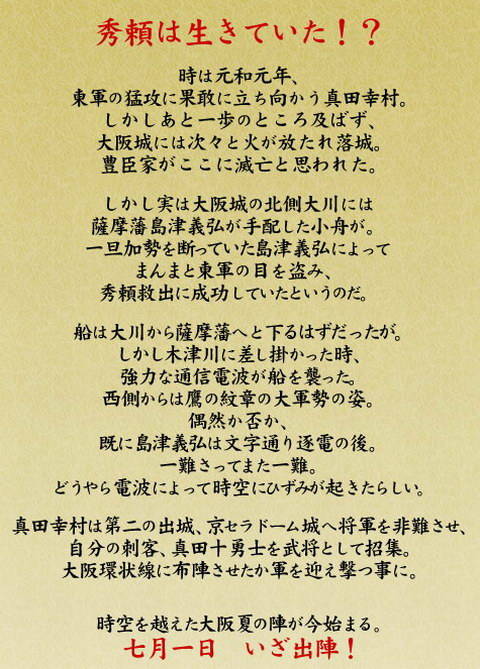 秀頼は生きていた！？
時は元和元年、
東軍の猛攻に果敢に立ち向かう真田幸村。
しかしあと一歩のところ及ばず、
大阪城には次々と火が放たれ落城。
豊臣家がここに滅亡と思われた。
しかし実は大阪城の北側大川には
薩摩藩島津義弘が手配した小舟が。
一旦加勢を断っていた島津義弘によって
まんまと東軍の目を盗み、
秀頼救出に成功していたというのだ。
船は大川から薩摩藩へと下るはずだったが。
しかし木津川に差し掛かった時、
強力な通信電波が船を襲った。
西側からは鷹の紋章の大軍勢の姿。
偶然か否か、
既に島津義弘は文字通り逐電の後。
一難さってまた一難。
どうやら電波によって時空にひずみが起きたらしい。
真田幸村は第二の出城、京セラドーム城へ将軍を非難させ、
自分の刺客、真田十勇士を武将として招集。
大阪環状線に布陣させたか軍を迎え撃つ事に。
時空を越えた大阪夏の陣が今始まる。
七月一日　いざ出陣！